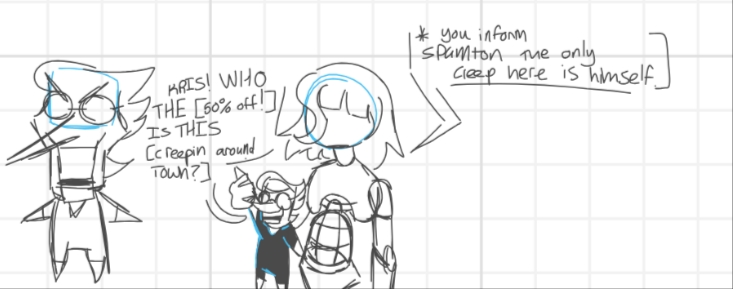 KRIS! WHO
THE [50% off!]
IS THIS
[creepin around
Town?]
* you inform
spamton the only
creep here is himself